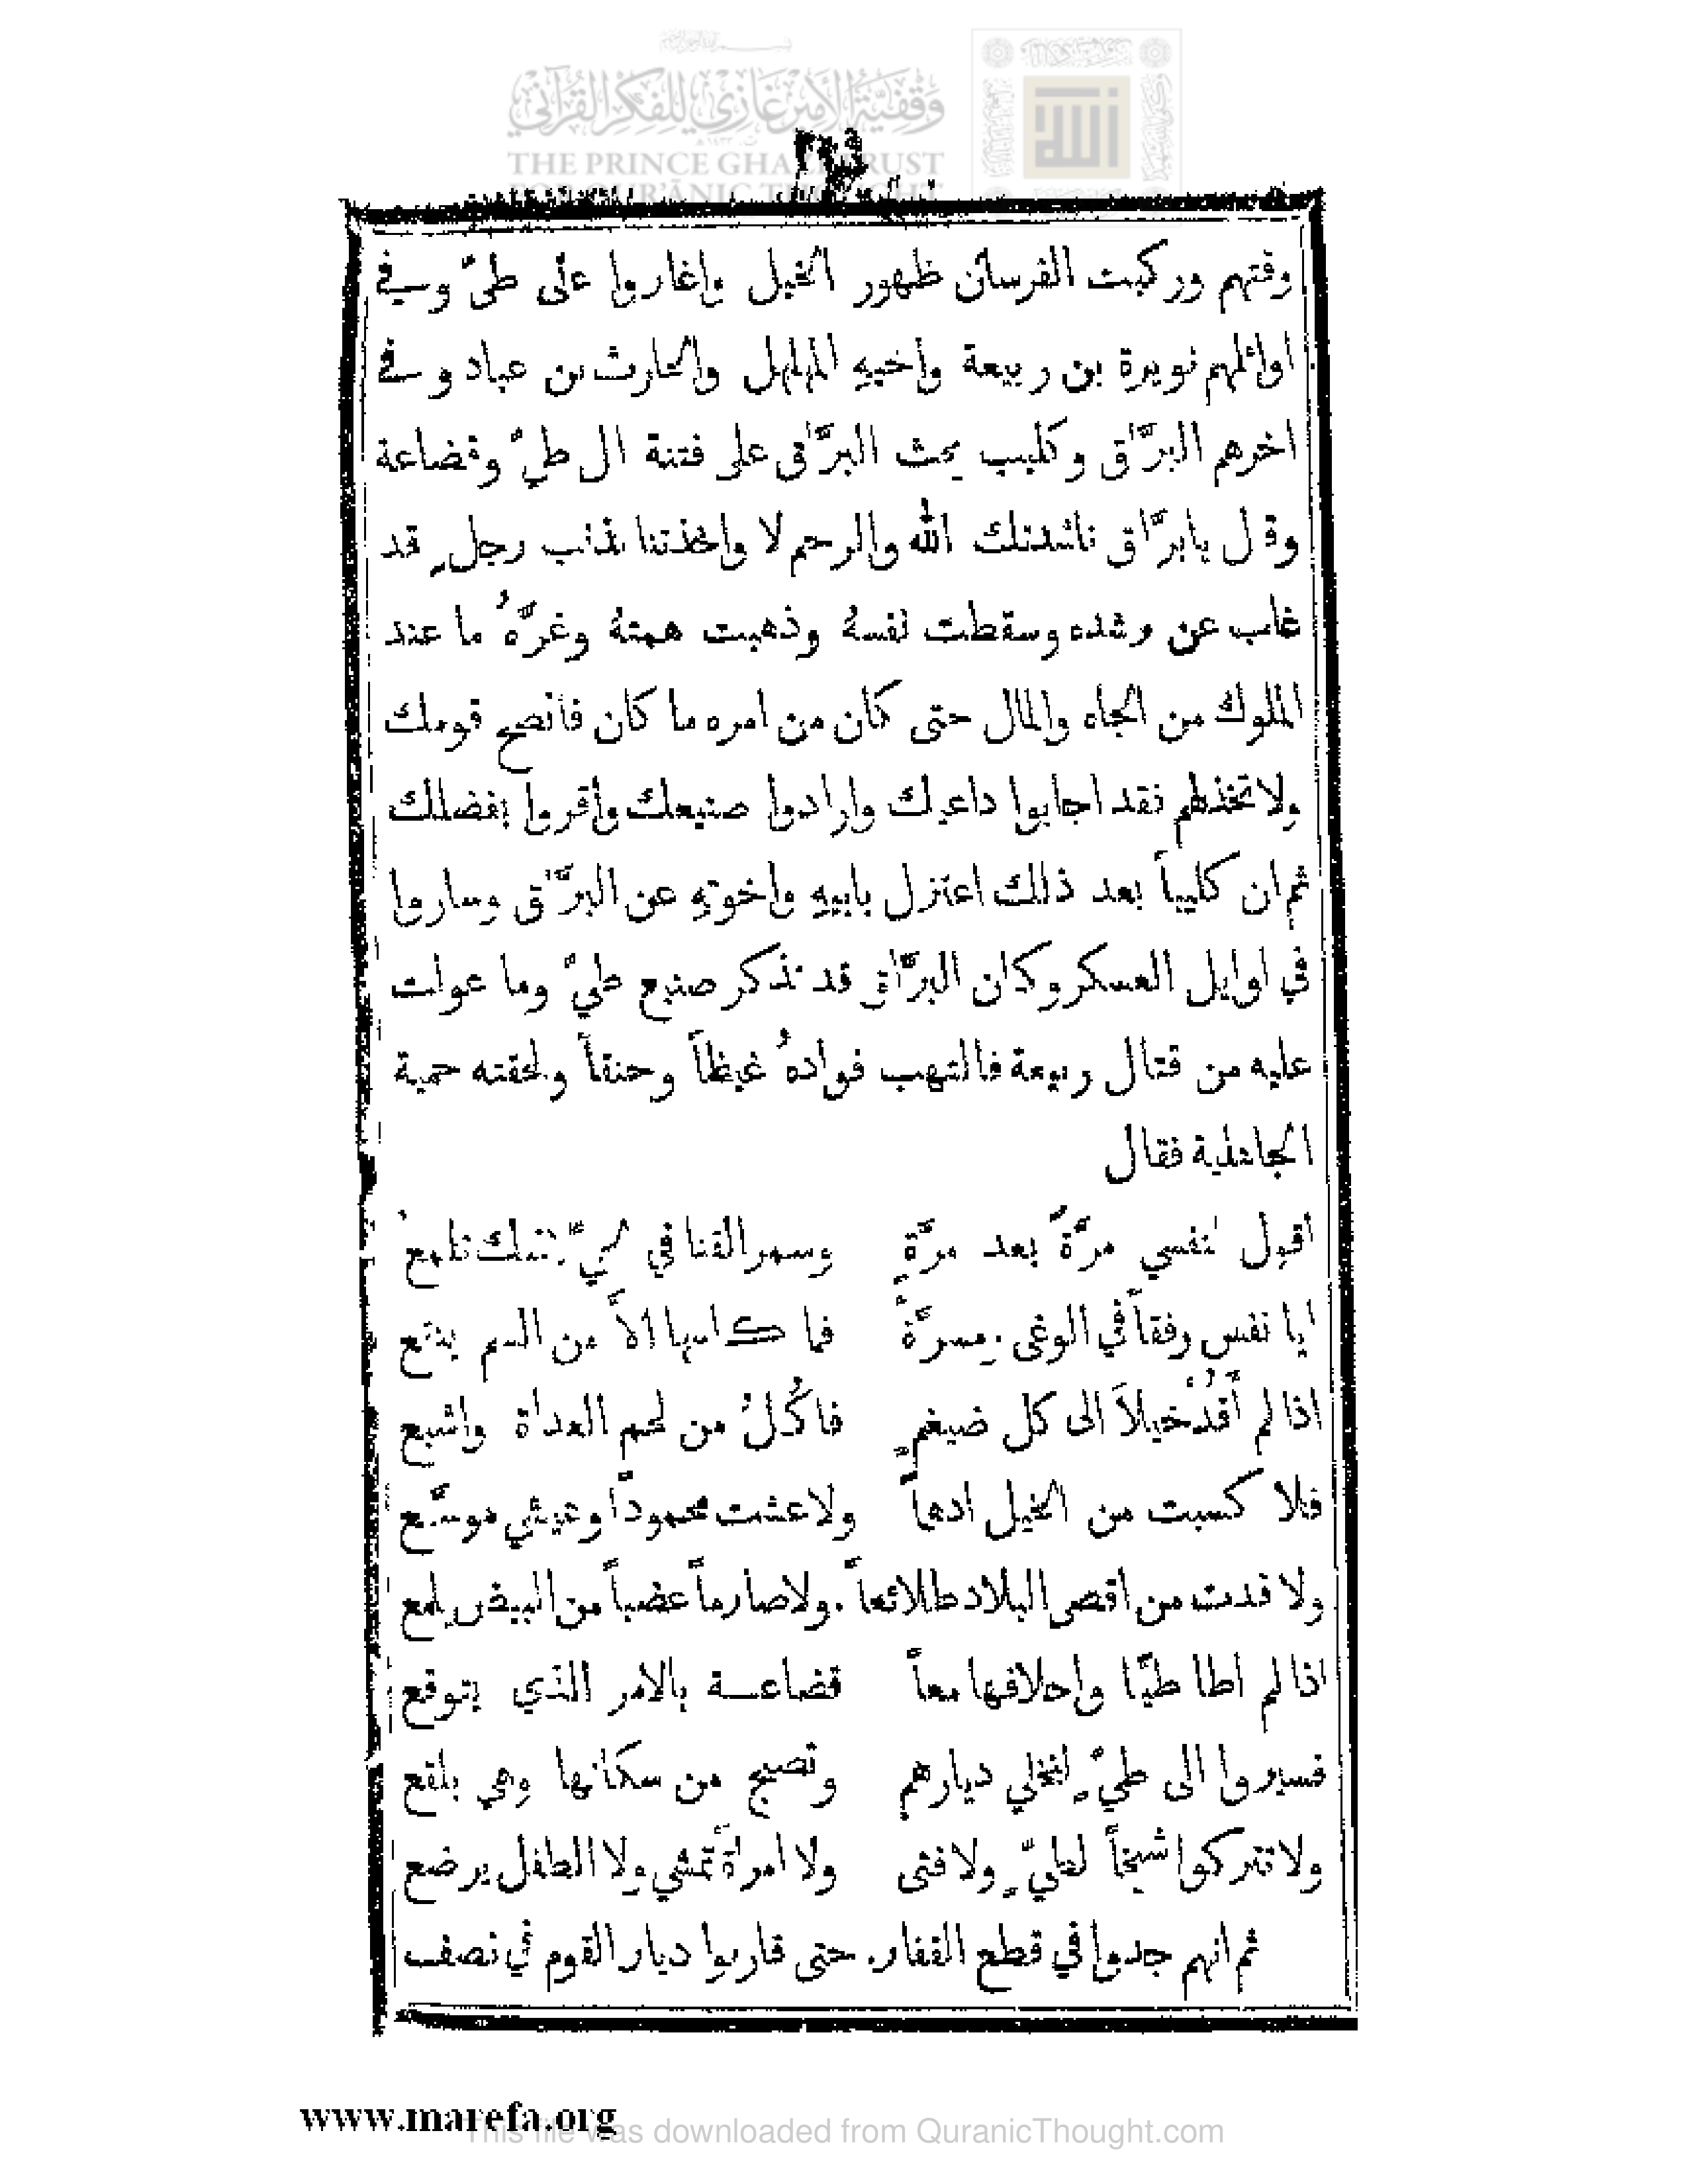 وقفية الأمير غازي للفكر القرآني
THE PRINCE GHAZI TRUST
FOR QUR'ĀNIC THOUGHT
وقتهم وركبت الفرسان ظهور الخيل واغاروا على طيّ وفي
اوائلهم نويرة بن ربيعة واخيهِ المهلهل والحارث بن عباد وفي
اخرهم البرَّاق وكليب يحث البرَّاق على فتنة ال طيّ وقضاعة
وقال يابرَّاق ناشدتك الله والرحم لا واخذتنا بذنب رجلٍ قد
غاب عن رشده وسقطت نفسهُ وذهبت همتهُ وغرَّهُ ما عند
الملوك من الجاه والمال حتى كان من امره ما كان فانصح قومك
ولا تخذلهم فقد اجابوا داعيك وارادوا صنيعك واقروا بفضلك
ثم ان كليباً بعد ذلك اعتزل بابيهِ واخوتهِ عن البرَّاق وساروا
في اوايل العسكر وكان البرَّاق قد تذكر صنيع طيّ وما عولت
عليه من قتال ربيعة فالتهب فوادهُ غيظاً وحنقاً ولحقته حمية
الجاهلية فقال
اقول لنفسي مرَّةً بعد مرَّةٍ وسمر القنا في الحيّ لاشك تلمع
ايا نفس رفقاً في الوغى ومسرَّةً فما كاسها الاَّ من السم ينقع
اذا لم أَقُدْ خيلاً الى كل ضيغمٍ فاكُلُ من لحم العداة واشبع
فلا كسبت من الخيل ادهماً ولا عشت محمودًا وعيشي موسَّع
ولا قدت من اقصى البلاد طلائعاً ولا صارماً عضباً من البيض يلمع
اذا لم اطا طيًّا واحلافها معاً قضاعة بالامر الذي يتوقع
فسيروا الى طيّ لنخلي ديارهم وتصبح من سكانها وهي بلقع
ولا تتركوا شيخاً لطيّ ولا فتى ولا امراةً تمشي ولا الطفل يرضع
ثم انهم جدوا في قطع القفار حتى قاربوا ديار القوم في نصف
www.marefa.org
This file was downloaded from QuranicThought.com